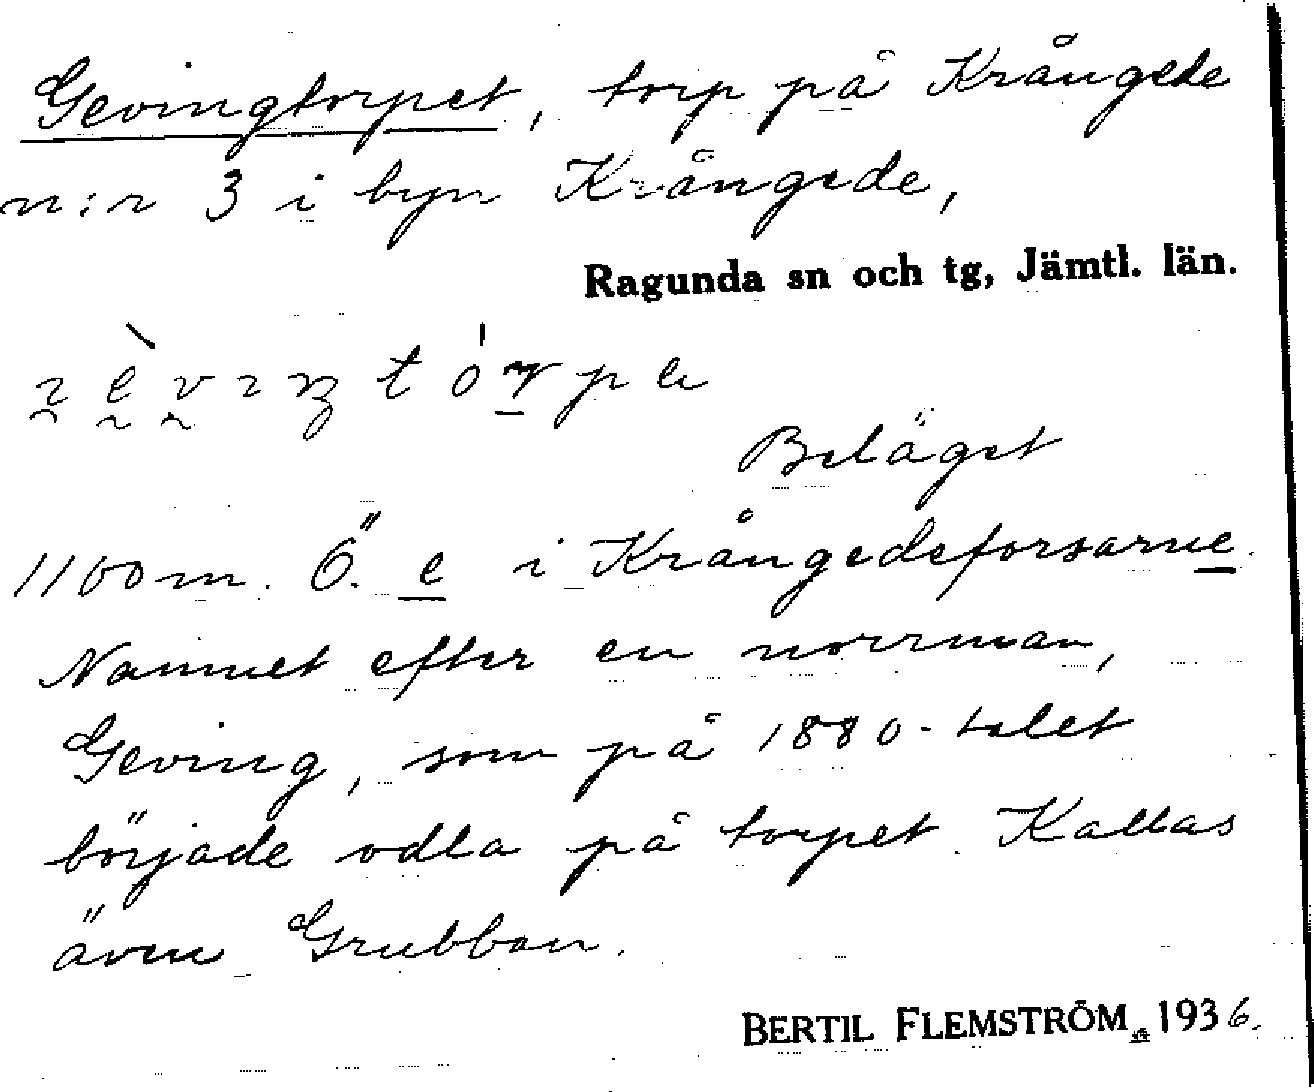 Gevingtorpet, torp på Krångede
n:r 3 i byn Krångede,
Ragunda sn och tg, Jämtl. län.
Beläget
1100 m. Ö. e i Krångedeforsarne.
Namnet efter en norrman,
Geving, som på 1880-talet
började odla på torpet. Kallas
även Grubban.
BERTIL FLEMSTRÖM 1936.